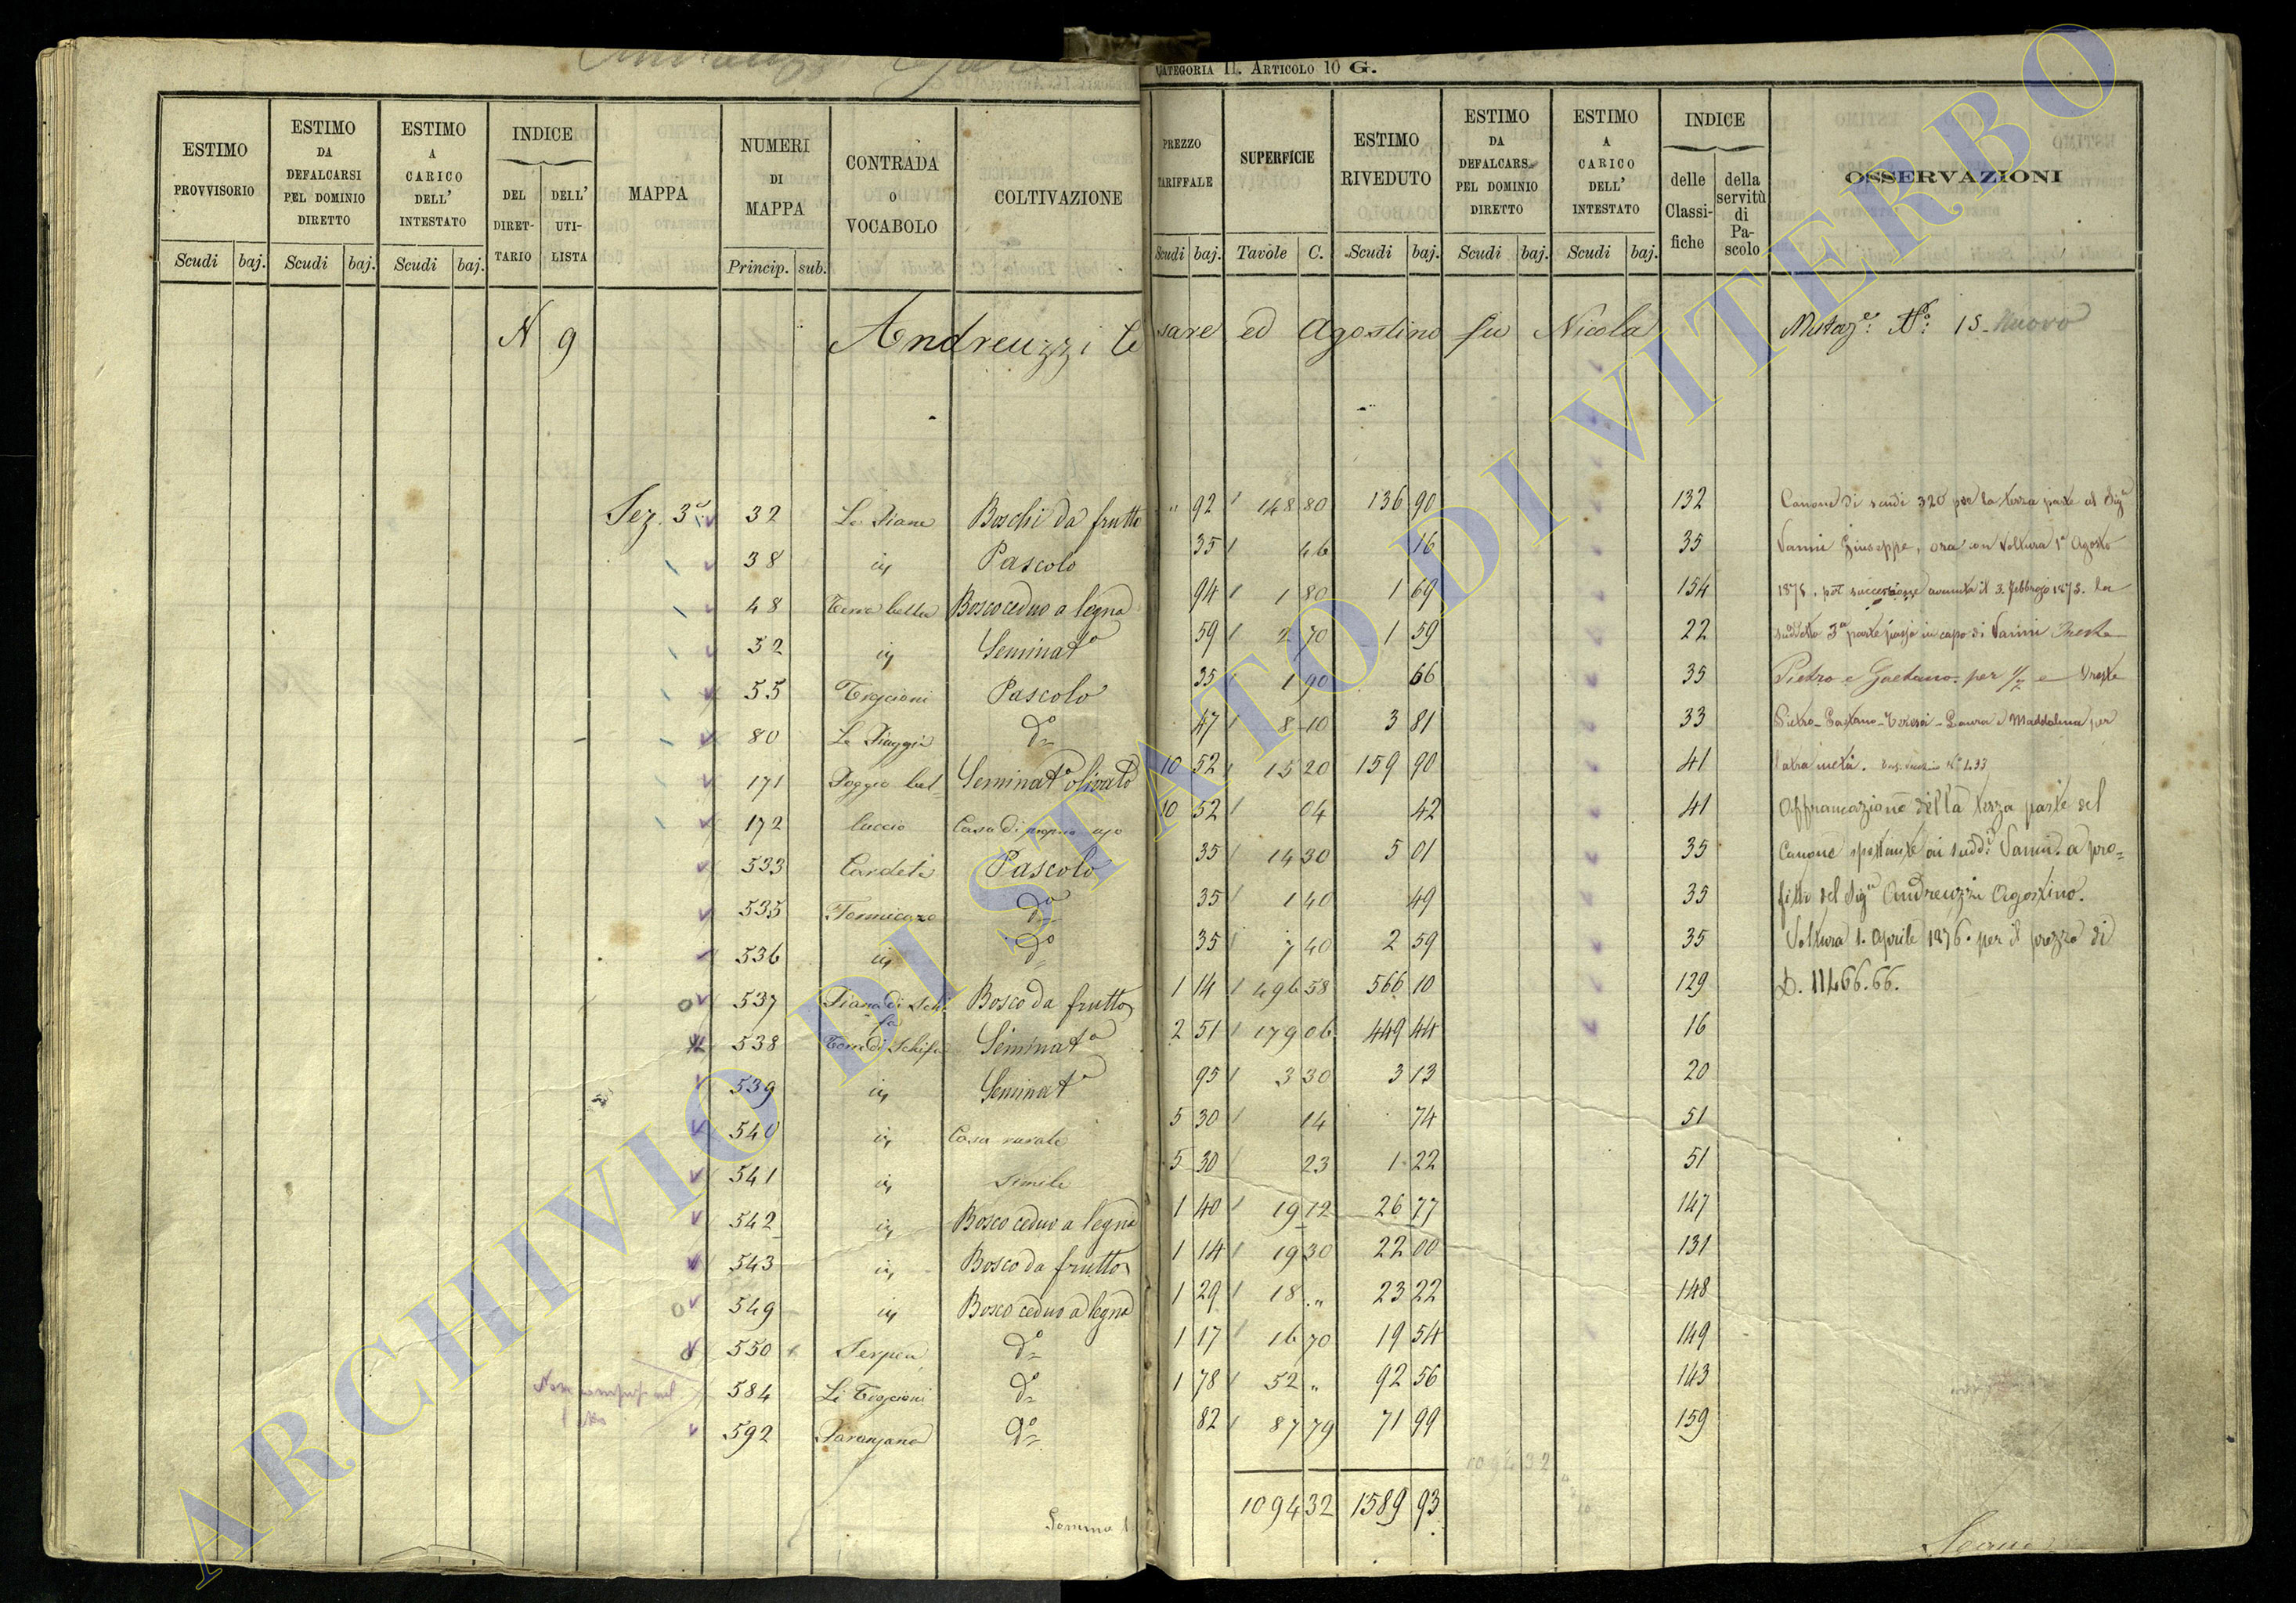 CATEGORIA II. ARTICOLO 10 G.
ESTIMO PROVVISORIO Scudi baj.
ESTIMO DA DEFALCARSI PEL DOMINIO DIRETTO Scudi baj.
ESTIMO A CARICO DELL' INTESTATO Scudi baj.
INDICE DEL DIRET- TARIO DELL' UTI- LISTA
MAPPA
NUMERI DI MAPPA Princip. sub.
CONTRADA O VOCABOLO
COLTIVAZIONE
PREZZO TARIFFALE Scudi baj.
SUPERFICIE Tavole C.
ESTIMO RIVEDUTO Scudi baj.
ESTIMO DA DEFALCARS PEL DOMINIO DIRETTO Scudi baj.
ESTIMO A CARICO DELL' INTESTATO Scudi baj.
INDICE delle Classi- fiche della servitù di Pa- scolo
OSSERVAZIONI
N 9 Andreuzzi Ce sare ed Agostino fu Nicola Mutaz.e: N.o: 15 - Nuovo
Sez. 3a 32 Le Piane Boschi da frutto " 92 148 80 136 90 132
38 in Pascolo 35 46 16 35
48 Terra bella Bosco ceduo a legna 94 1 80 1 69 154
52 in Seminato 59 2 70 1 59 22
55 Pascolo 35 1 90 66 35
80 La Piaggia do 47 8 10 3 81 33
171 Poggio bel- Seminato olivato 10 52 15 20 159 90 41
172 luccio Casa di proprio uso 10 52 04 42 41
533 Cardeta Pascolo 35 14 30 5 01 35
535 do 35 1 40 49 35
536 in do 35 7 40 2 59 35
537 Piana di Schi fo Bosco da frutto 1 14 496 58 566 10 129
538 Terra di Schifo Seminato 2 51 179 06 449 44 16
539 in Seminato 95 3 30 3 13 20
540 in Casa rurale 5 30 14 74 51
541 in Simile 5 30 23 1 22 51
542 in Bosco ceduo a legna 1 40 19 12 26 77 147
543 in Bosco da frutto 1 14 19 30 22 00 131
549 in Bosco ceduo a legna 1 29 18 " 23 22 148
550 do 1 17 16 70 19 54 149
584 do 1 78 52 " 92 56 143
592 do 82 87 79 71 99 159
Somma 1094 32 1589 93
1094 32
Canone di scudi 320 per la terza parte al Sigr
Vanni Giuseppe, ora con Voltura 1° Agosto
1875, per successione avvenuta il 3 Febbrajo 1873. la
suddetta 3a parte passa in capo di Vanni
Pietro e Gaetano per 1/2 e Oreste
Pietro - Gaetano - Teresa - Laura e Maddalena per
l'altra metà.
Affrancazione della terza parte del
Canone spettante ai sudd.i Vanni, a pro=
fitto del Sigr Andreuzzi Agostino.
Voltura 1. Aprile 1876. per il prezzo di
11466.66.
ARCHIVIO DI STATO DI VITERBO